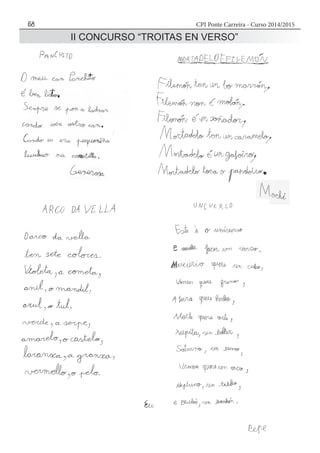 68
CPI Ponte Carreira - Curso 2014/2015
II CONCURSO “TROITAS EN VERSO”
PANCHITO
O meu can Panchito
é ben bito.
Sempre se pon a ladrar
cando ven outro can.
Cando eu era pequeniña
levábao na
Generosa
MORTADELO E FILEMÓN
Filemón, ten un bo marrón,
Filemón non é molón,
Filemón é un soñador,
Mortadelo ten un caramelo,
Mortadelo é un gaiteiro,
Mortadelo toca o pandeiro.
Moché
ARCO DA VELLA
O arco da vella
ten sete colores.
Violeta, a cometa,
anil, o mandil,
azul, o tul.
verde, a serpe,
amarelo, o castelo,
laranxa, a granxa,
vermello, o pelo.
UNIVERSO
Este é o universo
E facer un verso.
Mercurio quere ser cabo,
Venus quere
A terra quere
Marte quere
Saturno, un
Urano quere un saco,
Neptuno, un
Eu e Plutón, un
Pepe